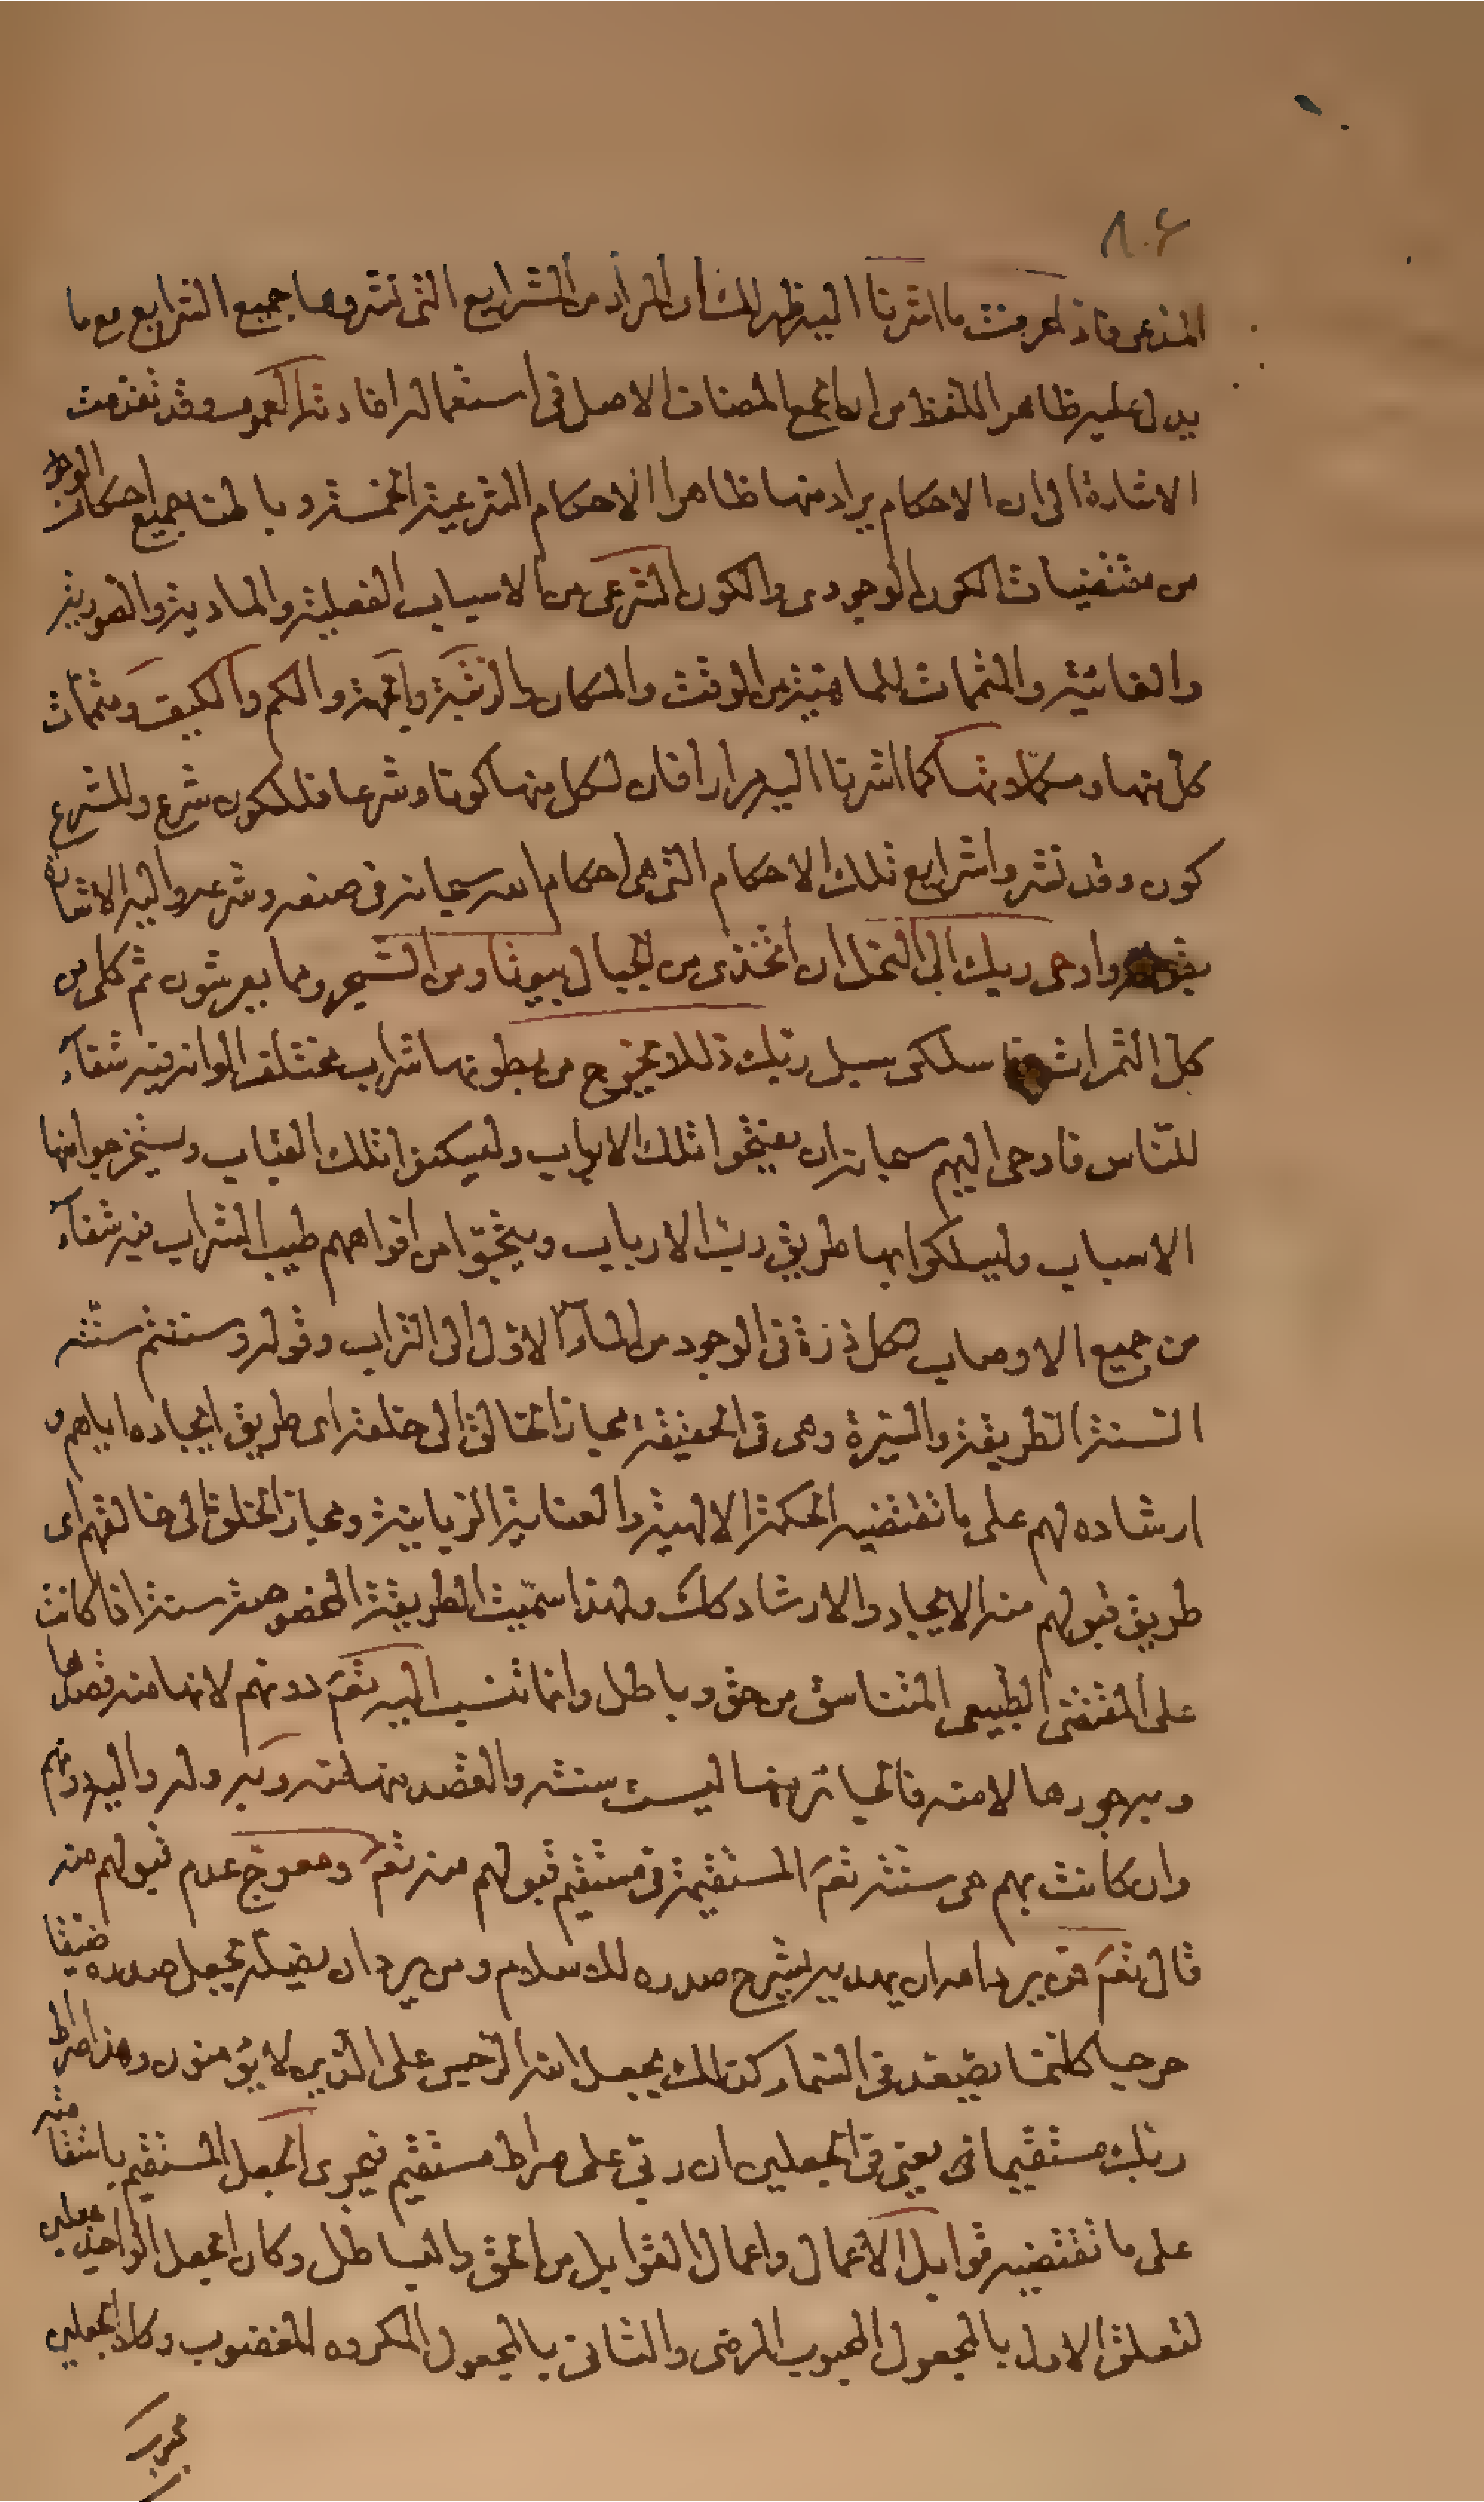 ٨٠٤
المدعى فاذا عرفت ما اشرنا اليه ظهر لك ان المراد من الشرايع التي نشروها جميع الشرايع مع ما
يدل عليه ظاهر اللفظ من ان الجمع المضاف الاصل في استعماله افادته العموم وقد تقدمت
الاشارة الى ان الاحكام يراد منها ظاهرا الاحكام الشرعية الخمسة وباطنا جميع احكام الوجود
من مقتضيات الكون الوجودي والكون الشرعي من الاسباب الفعلية والمادية والصورية
والغائية والمتممات للماهية من الوقت والمكان والرتبة والجهة والكم والكيف ومتممات
كل منها ومكملاتها كما اشرنا اليه مرارا فان لكل منها كونا وشرعا فللكون شرع وللشرع
كون وقد نشروا شرايع تلك الاحكام التي هي احكام الله سبحانه في صنعه وشرعه واليه الاشارة
بقوله واوحى ربك الى النحل ان اتخذي من الجبال بيوتا ومن الشجر ومما يعرشون ثم كلي من
كل الثمرات فاسلكي سبل ربك ذللا يخرج من بطونها شراب مختلف الوانه فيه شفاء
للنّاس فاوحى اليهم سبحانه ان يفتحوا تلك الابواب وليسكنوا تلك القباب ويستخرجوا منها
الاسباب وليسلكوا بها طريق ربّ الارباب من افواههم طيب الشراب فيه شفآء
من جميع الاوصاب لكل ذرة في الوجود من الماء الاول الى التراب وقوله وسننتم سنته
السنة الطريقة والسيرة وهي في الحقيقة مجاز الخالق الى خلقه اي طريق ايجاده اياهم و
ارشاده لهم على ما تقتضيه الحكمة الالهية والعناية الربانية ومجاز الخلق الى خالقهم اي
طريق قبولهم منه الايجاد والارشاد كك ولهذا سمّيت الطريقة المخصوصة سنة اذا كانت
على المقتضى الطبيعي المتناسق من حق وباطل وانما تنسب اليه تعم دونهم لانها منه قصدها
وبه وجودها لا منه بها ليست سنته والقصد منها منه وبه وله واليه دونهم
وان كانت بهم هي سنته تعم المستقيمة في مستقيم قبولهم منه تعم ومعوج عدم قبولهم منه
قال تعم فمن يرد الله ان يهديه يشرح صدره للاسلام ومن يرد ان يضلّه يجعل صدره ضيّقا
حرجا كانّما يصّعّد في السّماء كذلك يجعل الله الرّجس على الذين لا يؤمنون وهذا صراط
ربّك مستقيما يعني في الجعلين ان ربّي على صراط مستقيم فيجري الجعل المستقيم باستقامته
على ما تقتضيه قوابل الاعمال واعمال القوابل من الحق والباطل وكان الجعل الواحد جعلين
لتعلق الاول بالمجعول المحبوب المرضي والثاني بالمجعول المكروه المغضوب وكلا الجعلين